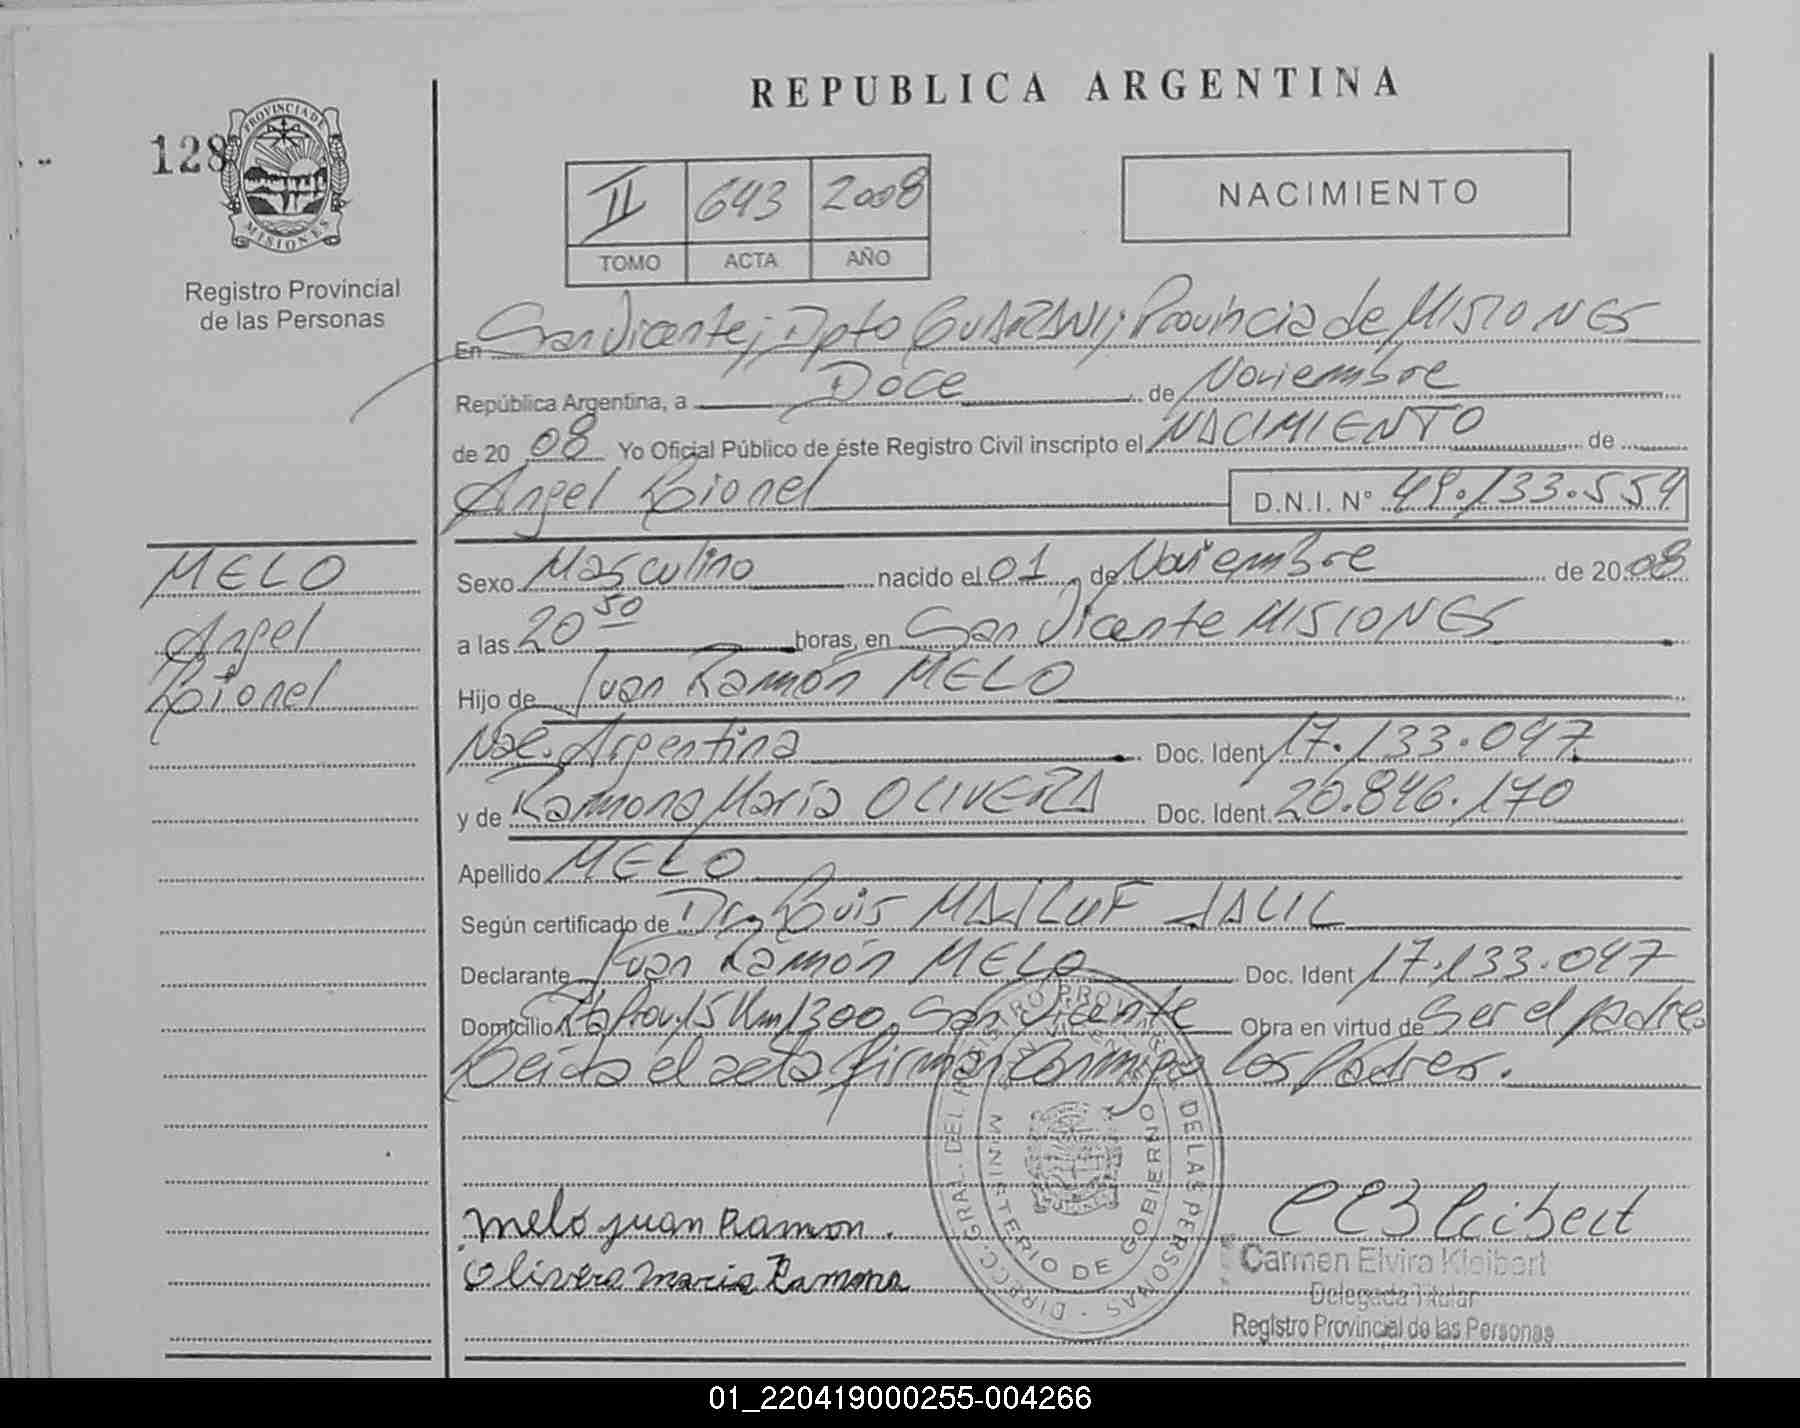 REPUBLICA ARGENTINA
128
PROVINCIA DE MISIONES
Registro Provincial
de las Personas
II 643 2008
TOMO ACTA AÑO
NACIMIENTO
En San Vicente; Dpto GUARANI; Provincia de MISIONES
República Argentina, a Doce de Noviembre
de 2008 Yo Oficial Público de éste Registro Civil inscripto el NACIMIENTO de
Angel Lionel D.N.I. N° 49.133.554
MELO
Angel
Lionel
Sexo Masculino nacido el 01 de Noviembre de 2008
a las 20 50 horas, en San Vicente MISIONES
Hijo de Juan Ramón MELO
Nac. Argentina Doc. Ident 17.133.047
y de Ramona María OLIVERA Doc. Ident. 20.846.170
Apellido MELO
Según certificado de Dr. Luis MAJLUF JALIL
Declarante Juan Ramón MELO Doc. Ident 17.133.047
Domicilio Rta Prov. 15 Km 1300, San Vicente Obra en virtud de Ser el padre
Leída el acta firman conmigo los Padres.
melo juan Ramon.
Olivera Maria Ramona
DIRECC. GRAL. DEL REGISTRO PROVINCIAL DE LAS PERSONAS
SAN VICENTE
MINISTERIO DE GOBIERNO
CEKleibert
Carmen Elvira Kleibert
Delegada Titular
Registro Provincial de las Personas
01_220419000255-004266